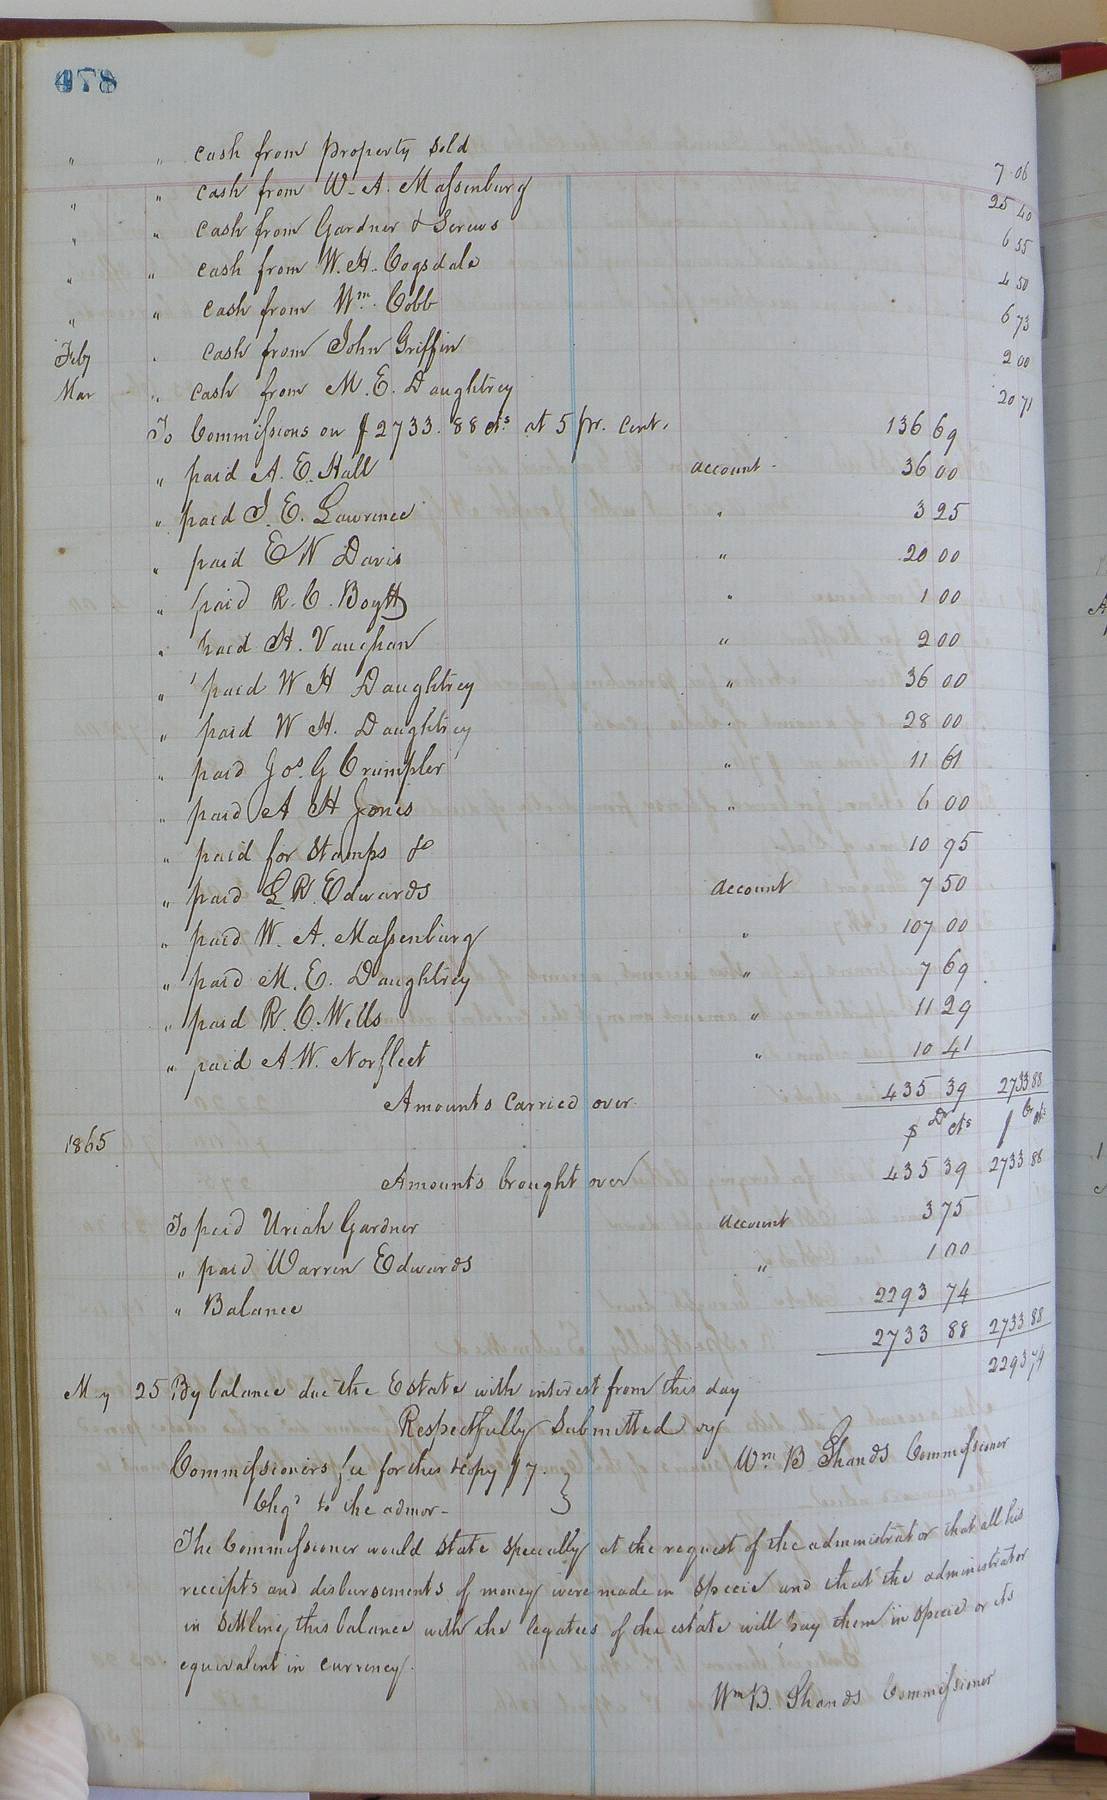 478
" " cash from property sold 7.06
" " cash from W. A. Massenburg 25 40
" " cash from Gardner & Screws 6 55
" " cash from W. H. Cogsdale 4 50
" " cash from Wm. Cobb 6 73
Feby . cash from John Griffin 2 00
Mar " cash from M. E. Daughtrey 20 71
To Commissions on $2733.88 cts at 5 pr. cent. 136 69
" paid A. E. Hall account 36 00
" paid J. E. Lawrence " 3 25
" paid E W Davis " 20 00
" paid R. C. Boytt " 1 00
" paid H. Vaughan " 2 00
" paid W H Daughtrey " 36 00
" paid W H. Daughtrey " 28 00
" paid Jos. G Crumpler " 11 61
" paid A H Jones " 6 00
" paid for Stamps & 10 95
" paid L. R. Edwards account 7 50
" paid W. A. Massenburg " 107 00
" paid M. E. Daughtrey " 7 69
" paid R. C. Wells " 11 29
" paid A. W. Norfleet " 10 41
Amounts carried over 435 39 2733 88
1865 $ Dr cts $ Cr cts
Amounts brought over 435 39 2733 88
To paid Uriah Gardner account 3 75
" paid Warren Edwards " 1 00
" Balance 2293 74
2733 88 2733 88
My 25 By balance due the Estate with interest from this day 2293 74
Respectfully Submitted by
Wm B Shands Commissioner
Commissioners fee for this & copy $7.
Chgd to the admor-
The Commissioner would State specially at the request of the administrator that all his
receipts and disbursements of money were made in specie and that the administrator
in Settling this balance with the legatees of the estate will pay them in specie or its
equivalent in currency.
Wm B. Shands Commissioner